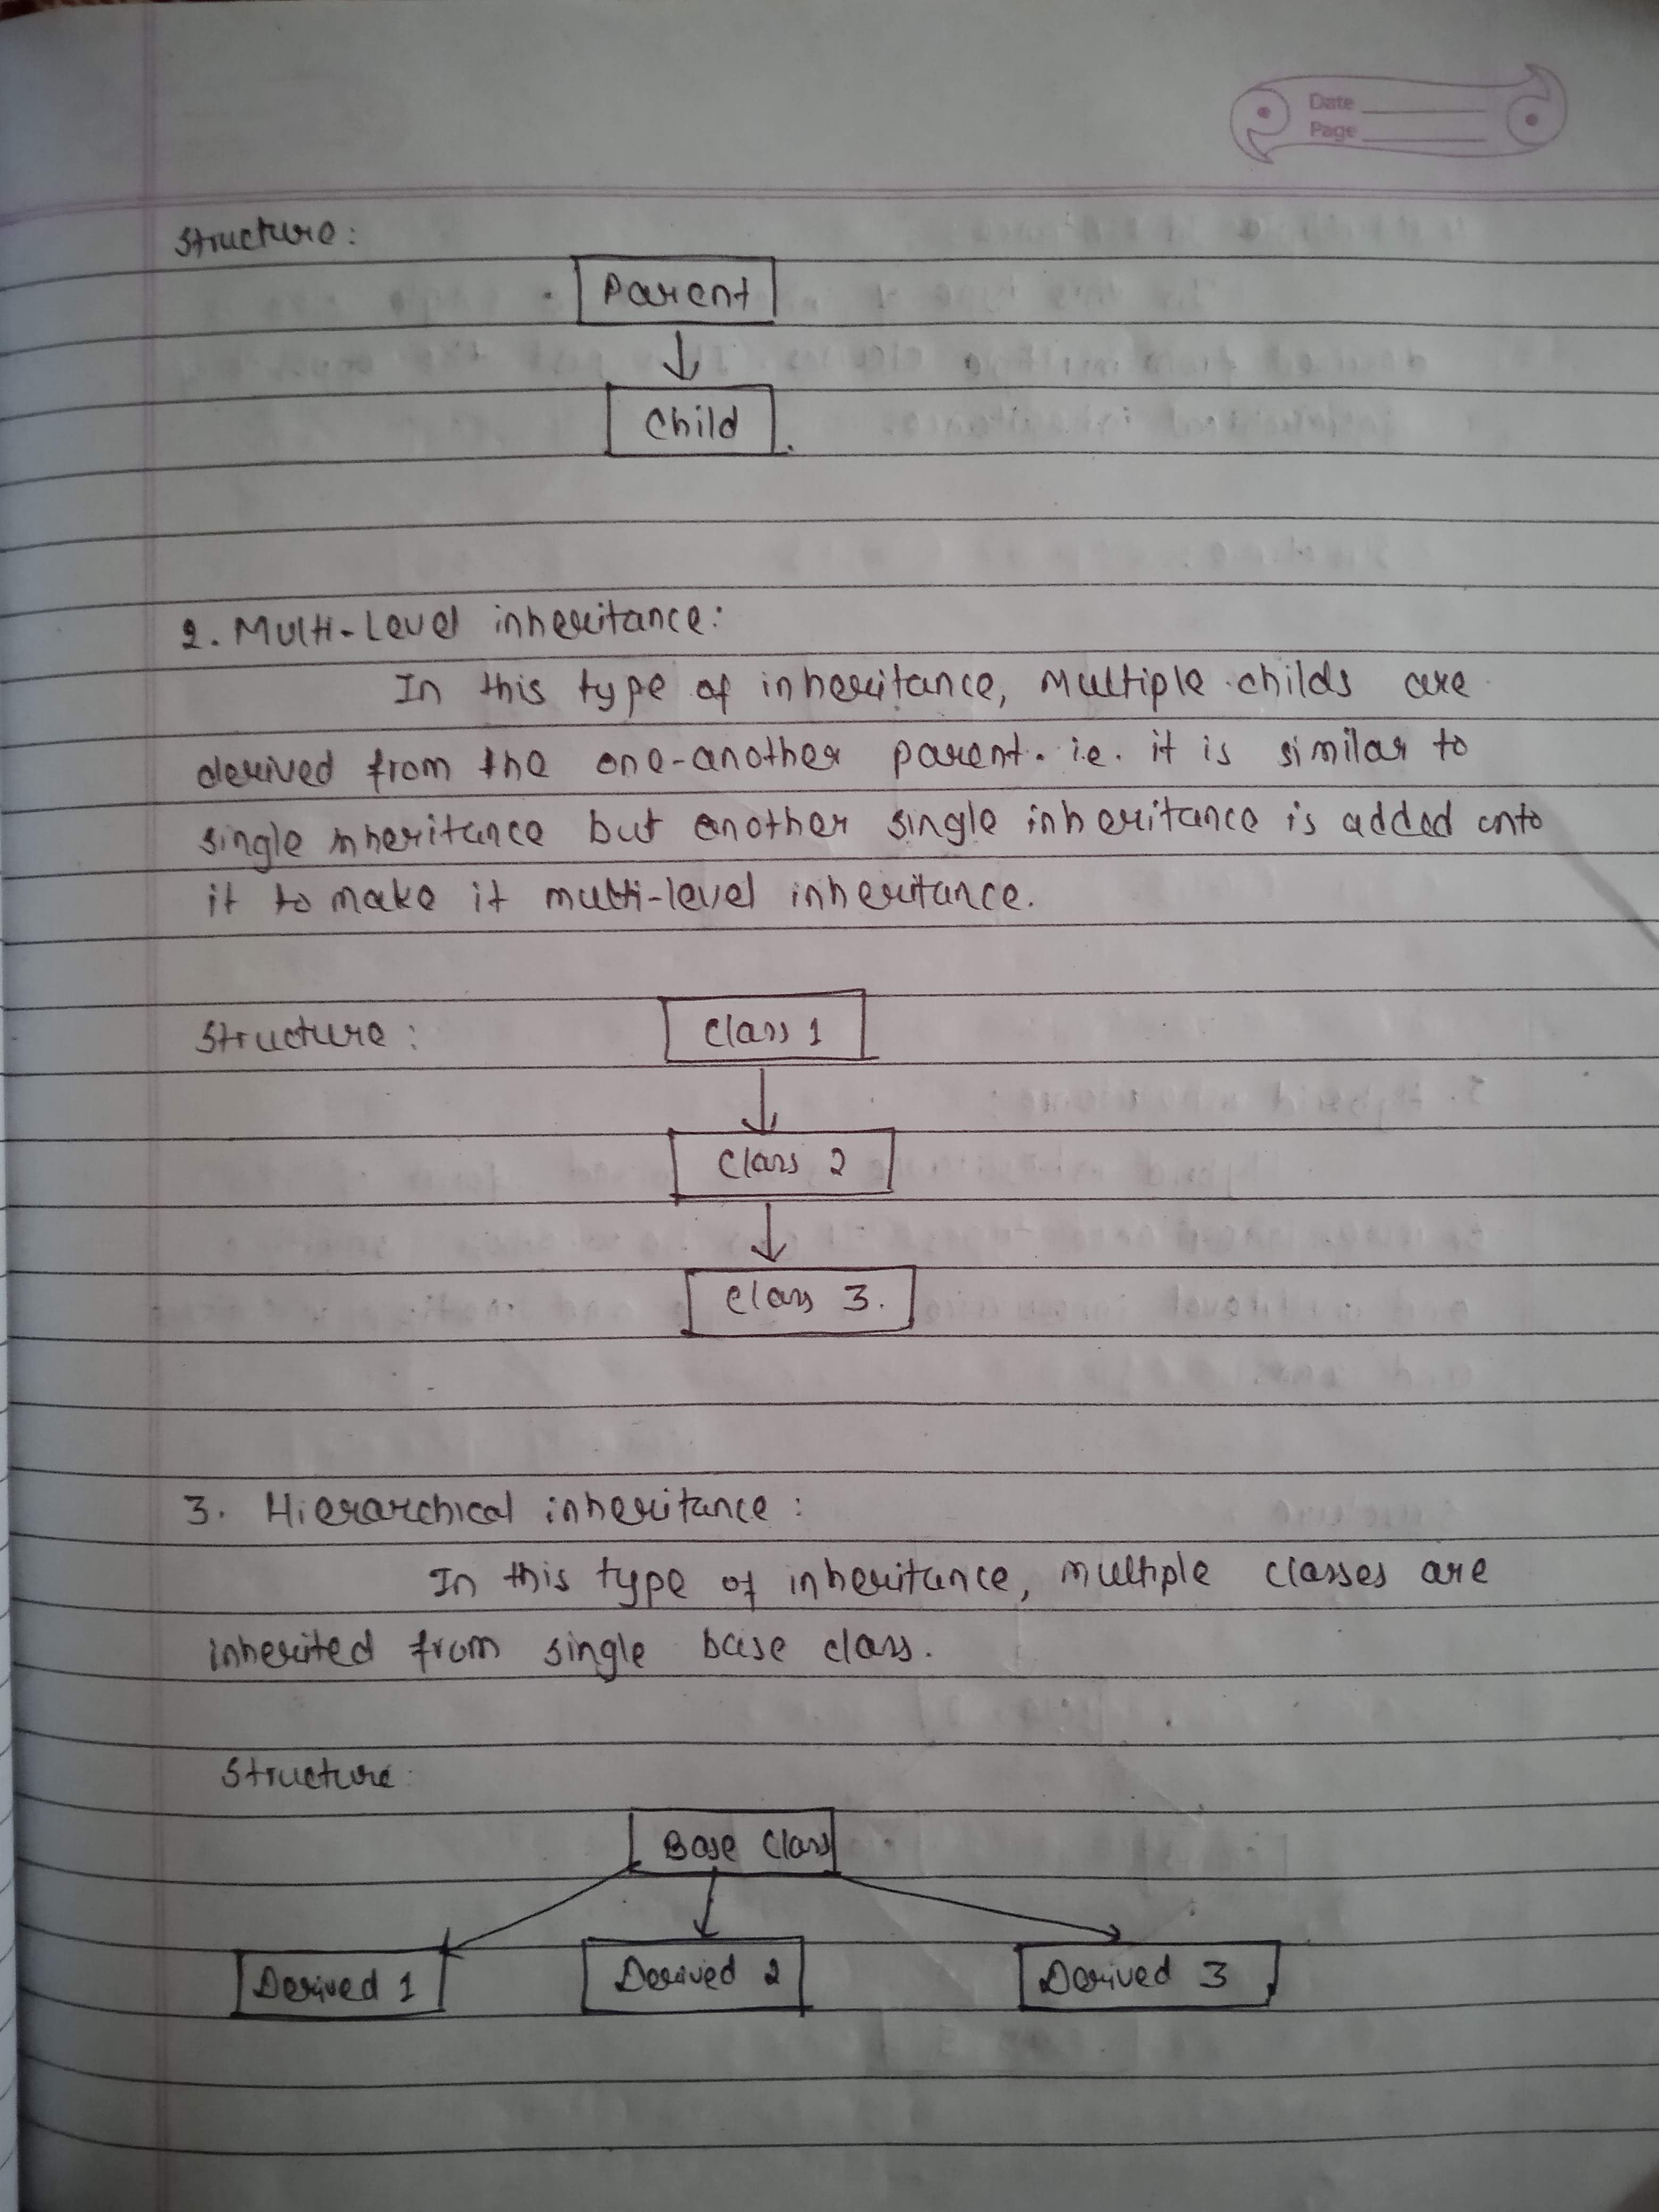 Date
Page
Structure:
Parent
Child
2. Multi-Level inheritance:
In this type of inheritance, multiple childs are
derived from the one-another parent. i.e. it is similar to
single inheritance but another single inheritance is added onto
it to make it multi-level inheritance.
Structure:
Class 1
Class 2
Class 3.
3. Hierarchical inheritance:
In this type of inheritance, multiple classes are
inherited from single base class.
Structure:
Base Class
Derived 1 Derived 2 Derived 3